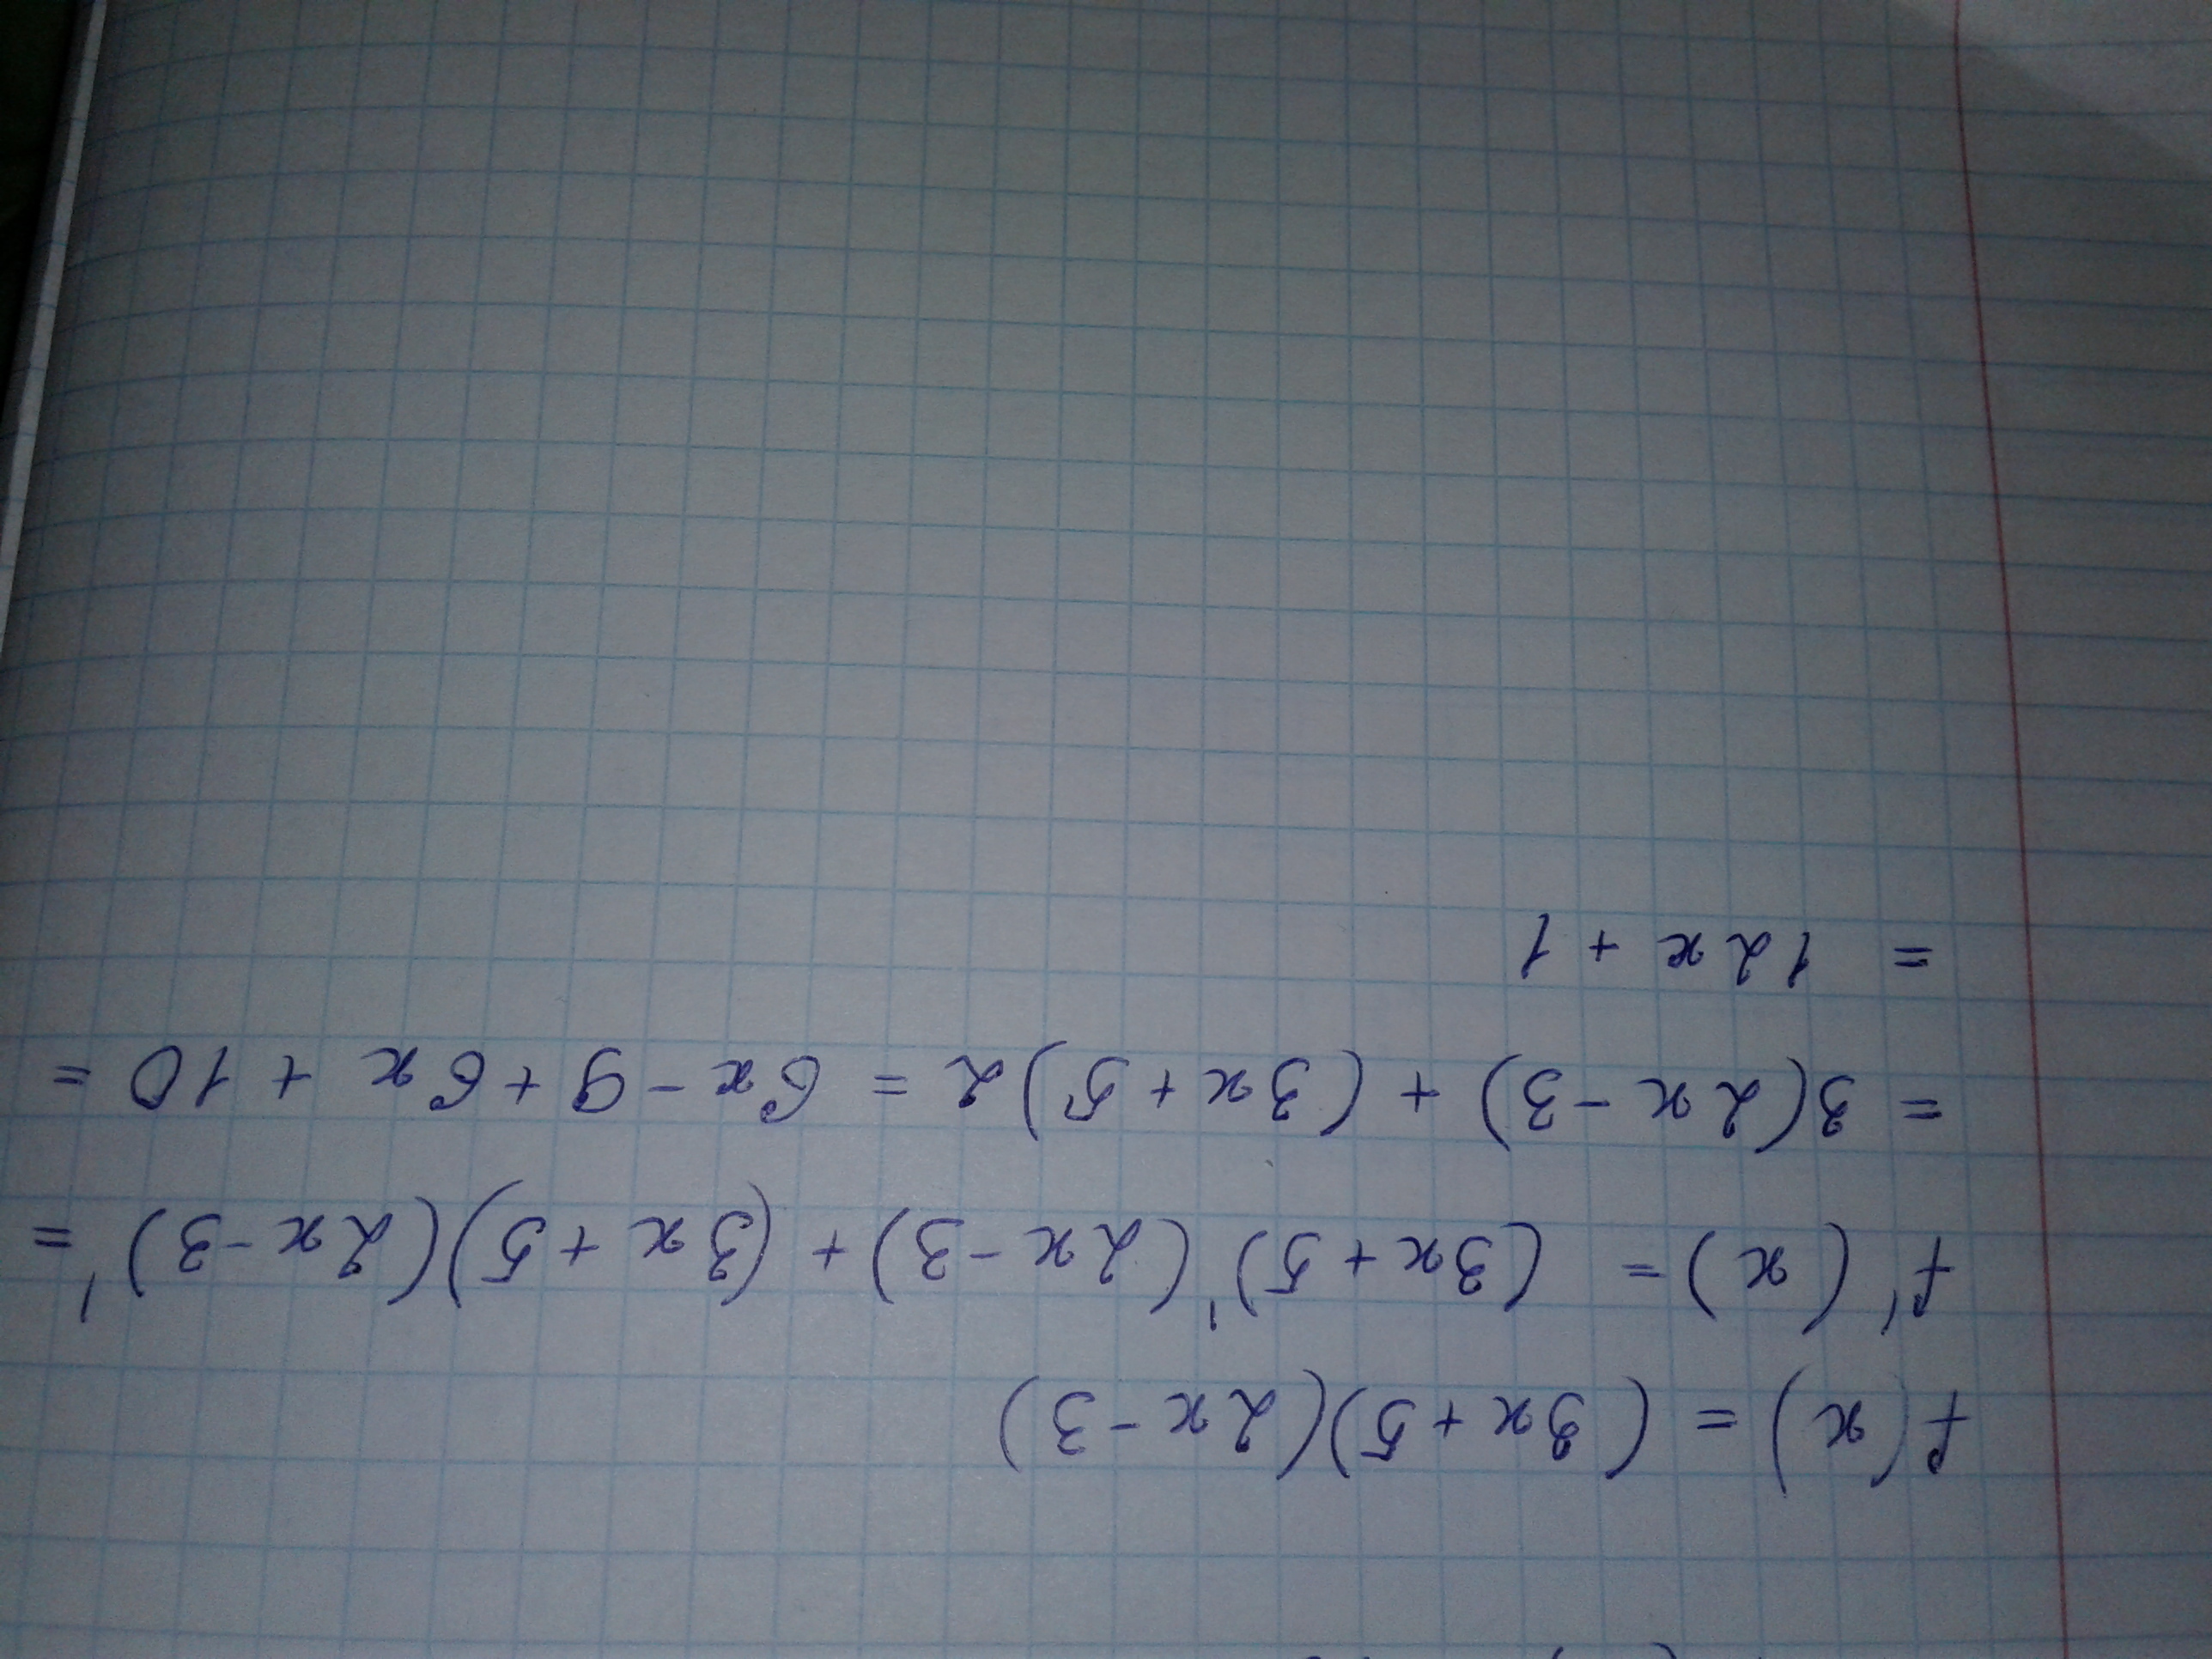 f(x) = (3x+5)(2x-3)
f'(x) = (3x+5)'(2x-3)+(3x+5)(2x-3)' =
= 3(2x-3)+(3x+5)2 = 6x-9+6x+10 =
= 12x+1